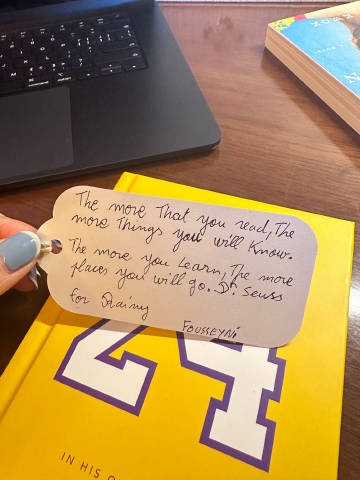 The more That you read, The
more Things you will Know.
The more you Learn, The more
places you will go. Dr. Seuss
for Rainy
FOUSSEYNI
24
IN HIS O